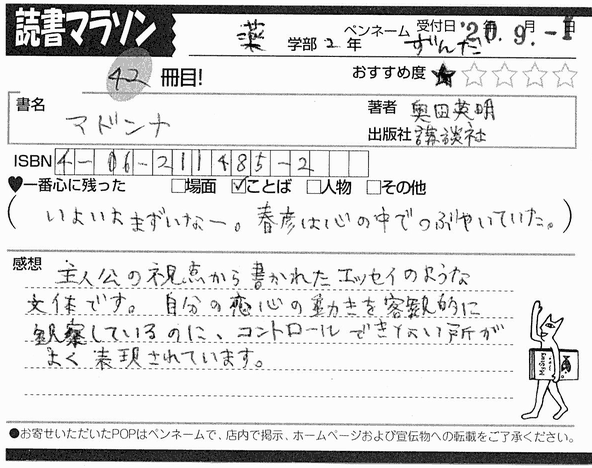 読書マラソン
薬 学部 2 年 ペンネーム ずんだ 受付日 '20年 9月 -1日
42 冊目! おすすめ度 ★☆☆☆☆
書名 マドンナ
著者 奥田英明
出版社 講談社
ISBN 4-06-211485-2
♥一番心に残った □場面 ☑ことば □人物 □その他
(いよいよまずいなー。春彦は心の中でつぶやいていた。)
感想
主人公の視点から書かれたエッセイのような
文体です。自分の恋心の動きを客観的に
観察しているのに、コントロールできない所が
よく表現されています。
●お寄せいただいたPOPはペンネームで、店内で掲示、ホームページおよび宣伝物への転載をご了承ください。